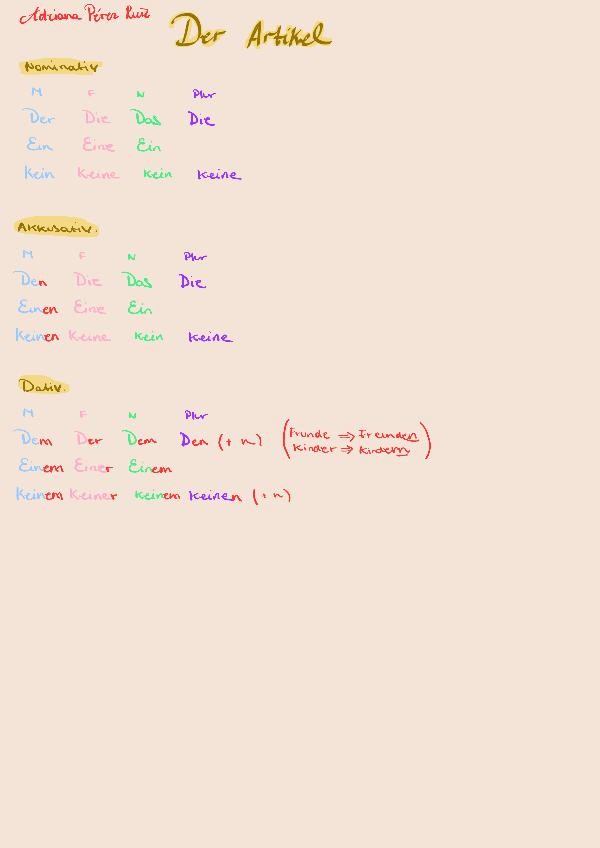 Adriana Pérez Ruiz
Der Artikel
Nominativ
M F N Plur
Der Die Das Die
Ein Eine Ein
Kein Keine Kein Keine
Akkusativ.
M F N Plur
Den Die Das Die
Einen Eine Ein
Keinen Keine Kein Keine
Dativ.
M F N Plur
Dem Der Dem Den (+ n) (Frunde ⇒ Freunden
Kinder ⇒ Kindern)
Einem Einer Einem
Keinem Keiner Keinem Keinen (+ n)